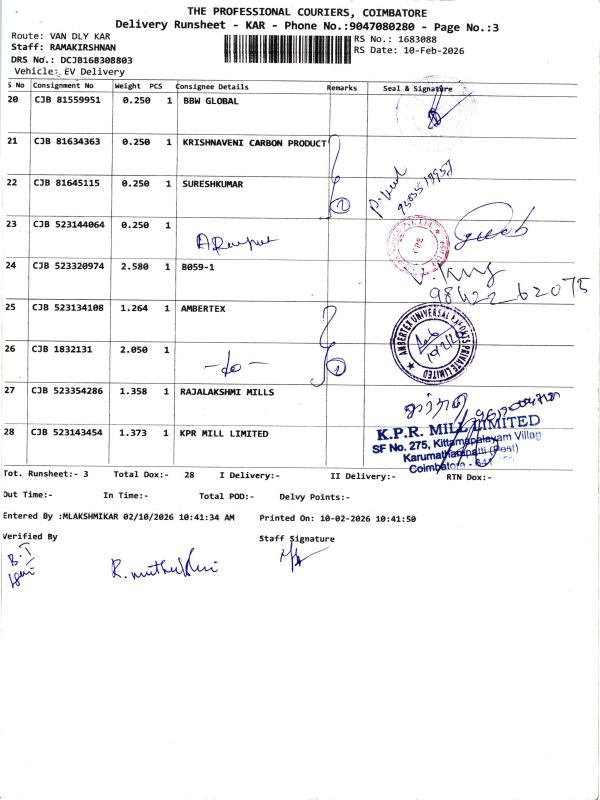 THE PROFESSIONAL COURIERS, COIMBATORE
Delivery Runsheet - KAR - Phone No.:9047080280 - Page No.:3
Route: VAN DLY KAR
RS No.: 1683088
Staff: RAMAKIRSHNAN
RS Date: 10-Feb-2026
DRS No.: DCJB168308803
Vehicle: EV Delivery
S No Consignment No Weight PCS Consignee Details Remarks Seal & Signature
20 CJB 81559951 0.250 1 BBW GLOBAL
21 CJB 81634363 0.250 1 KRISHNAVENI CARBON PRODUCT
22 CJB 81645115 0.250 1 SURESHKUMAR
23 CJB 523144064 0.250 1
24 CJB 523320974 2.580 1 8059-1
98422_62075
25 CJB 523134108 1.264 1 AMBERTEX
AMBERTEX UNIVERSAL EXPORTS PRIVATE LIMITED
26 CJB 1832131 2.050 1
-do-
27 CJB 523354286 1.358 1 RAJALAKSHMI MILLS
28 CJB 523143454 1.373 1 KPR MILL LIMITED
K.P.R. MILL LIMITED
SF No. 275, Kittampalayam Villag
Karumathampatti (Post)
Coimbatore - 641
Tot. Runsheet:- 3 Total Dox:- 28 I Delivery:- II Delivery:- RTN Dox:-
Out Time:- In Time:- Total POD:- Delvy Points:-
Entered By :MLAKSHMIKAR 02/10/2026 10:41:34 AM Printed On: 10-02-2026 10:41:50
Verified By Staff Signature